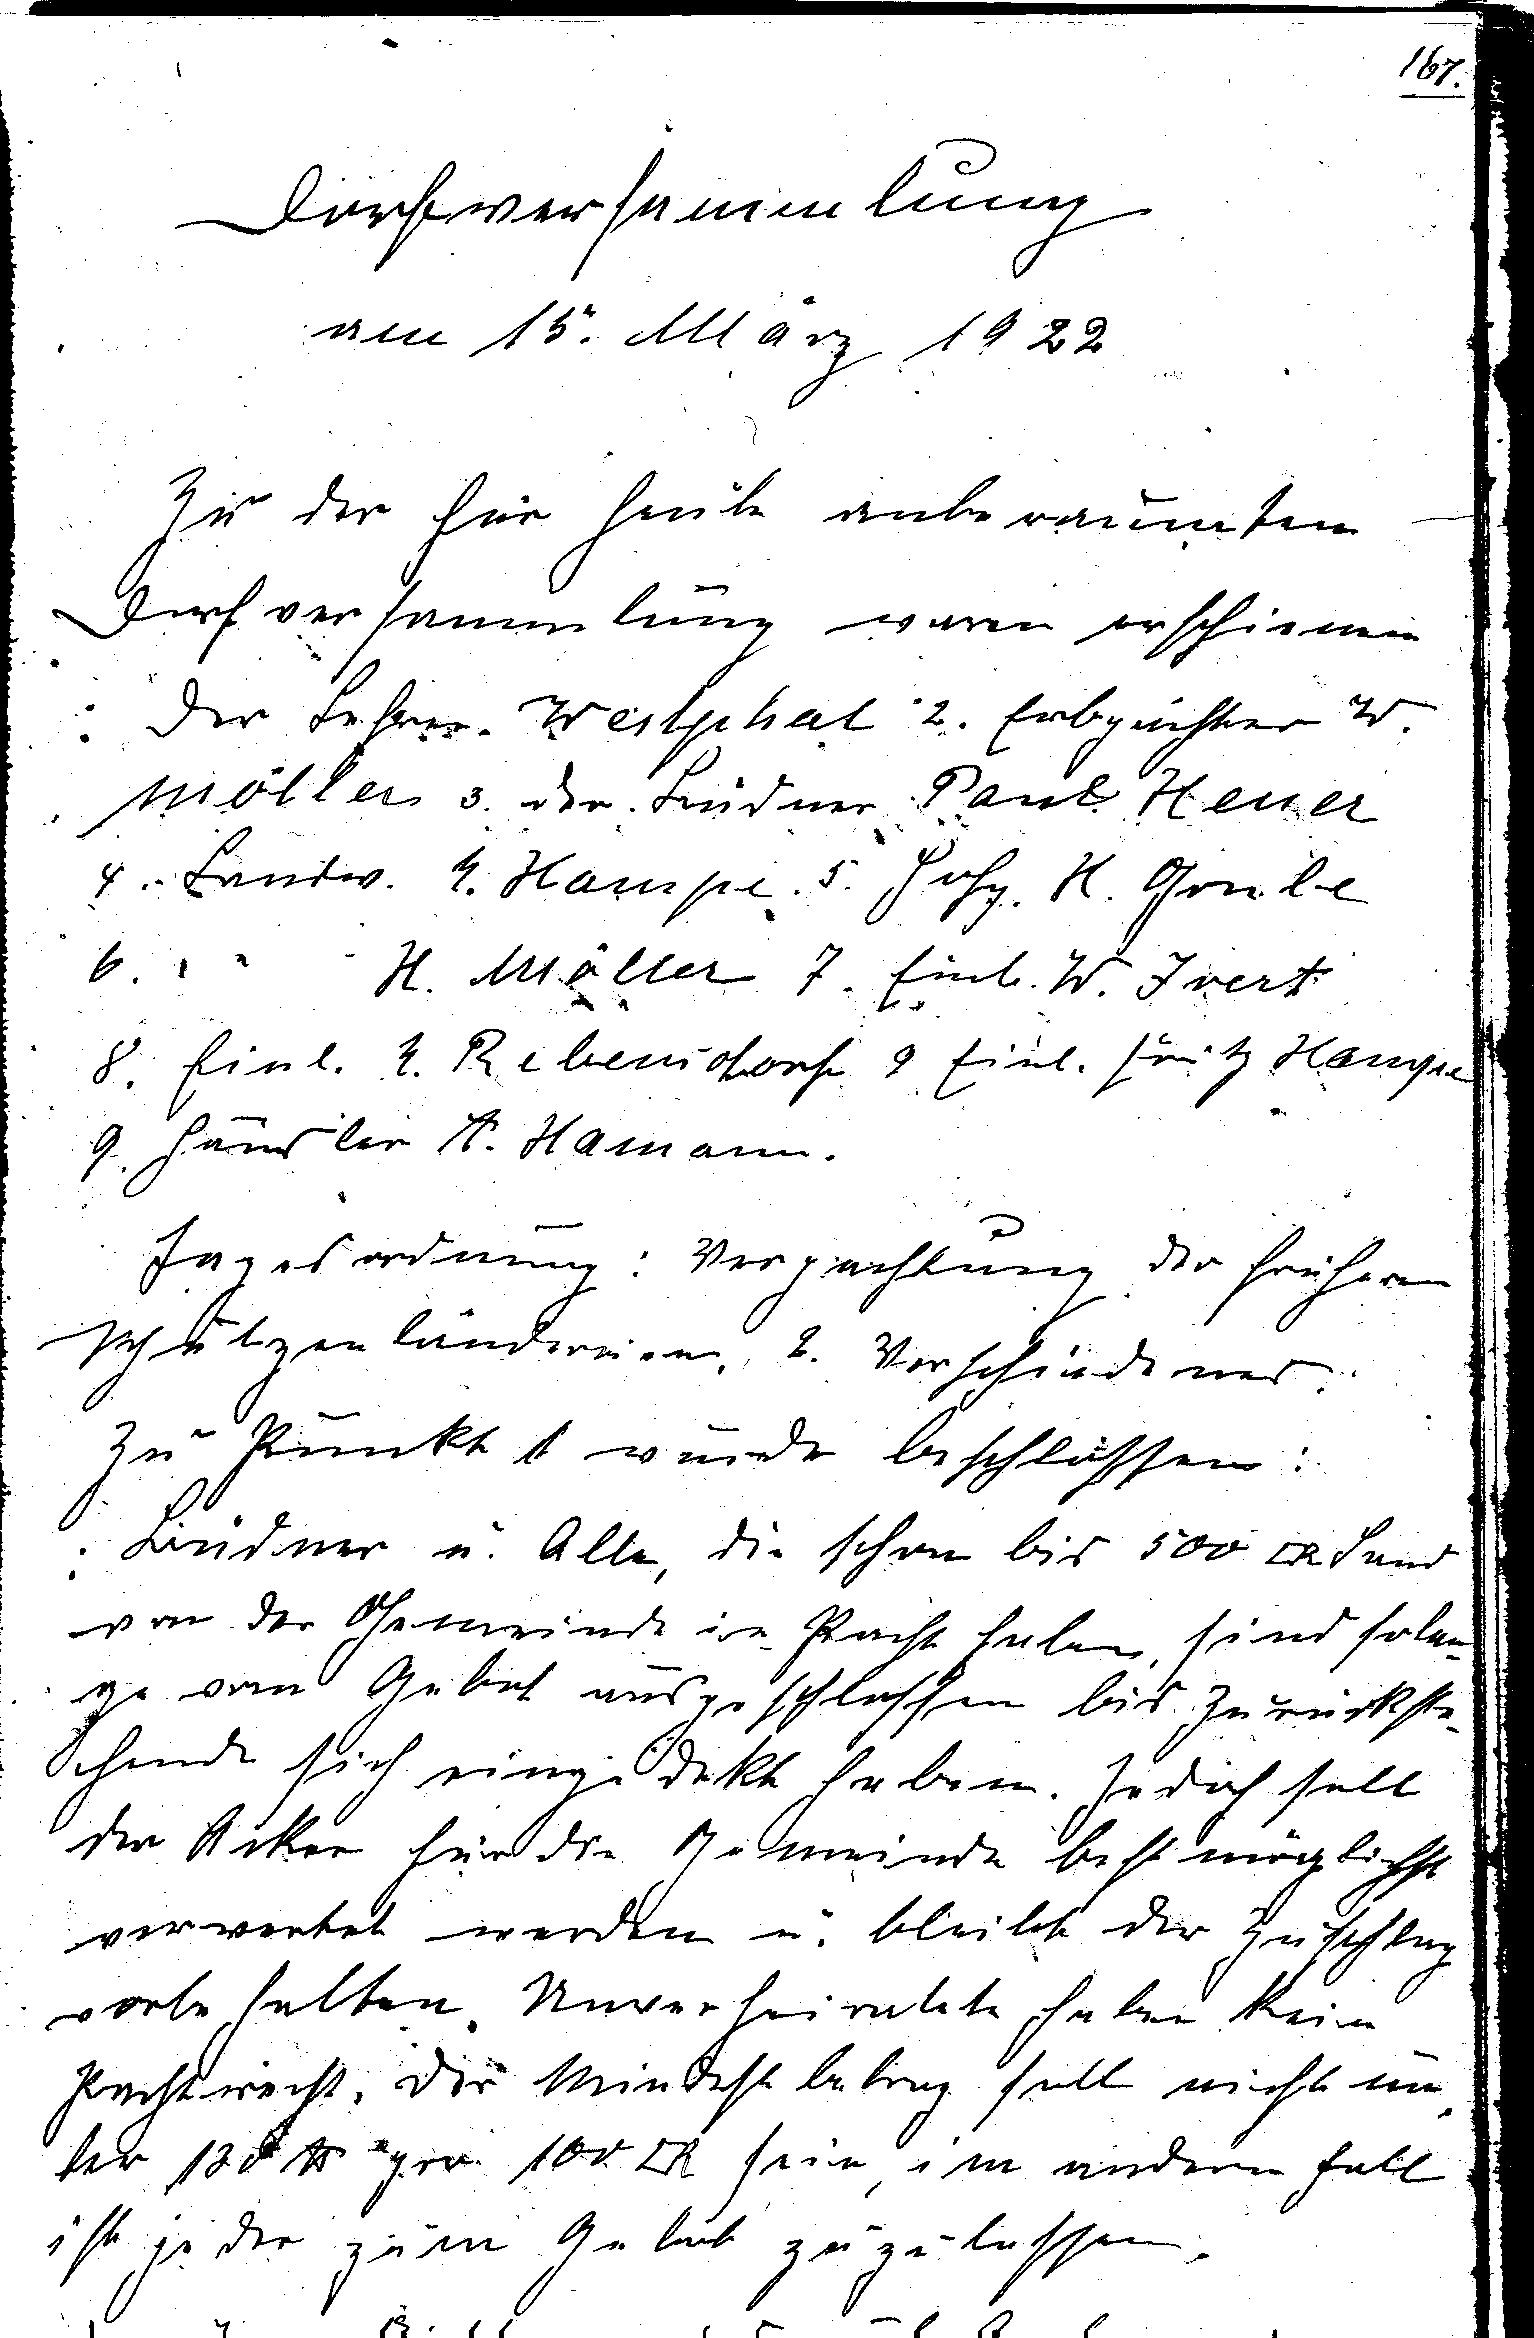 167.
Dorfversammlung
am 15. März 1922
Zu der für heute anberaumten
Dorfversammlung waren erschienen
: Der Lehrer Westphal 2. Erbpächter W.
Möller 3. der Büdner Paul Heuer
4. Landw. H. Hampe 5. H.
6. " " H. Möller 7. Einl. W. Ivert
8. Einl. H. Rebensdorf 9 Einl. Fritz Hampe
9. Häusler A. Hamann.
Tagesordnung: Verpachtung der früheren
Schulzenländereien, 2. Verschiedenes.
Zu Punkt 1 wurde beschlossen:
: Büdner u. Alle, die schon bis 500 □R Land
von der Gemeinde in Pacht haben, sind solan-
ge vom Gebot ausgeschlossen bis Zurückste-
hende sich eingedekt haben. Jedoch soll
der Acker für die Gemeinde bestmöglichst
verwertet werden u. bleibt der Zuschlag
vorbehalten. Unverheiratete haben kein
Pachtrecht. Der Mindestbetrag soll nicht un-
ter 130 pro 100 □R sein, im andern Fall
ist jeder zum Gebot zuzulassen.